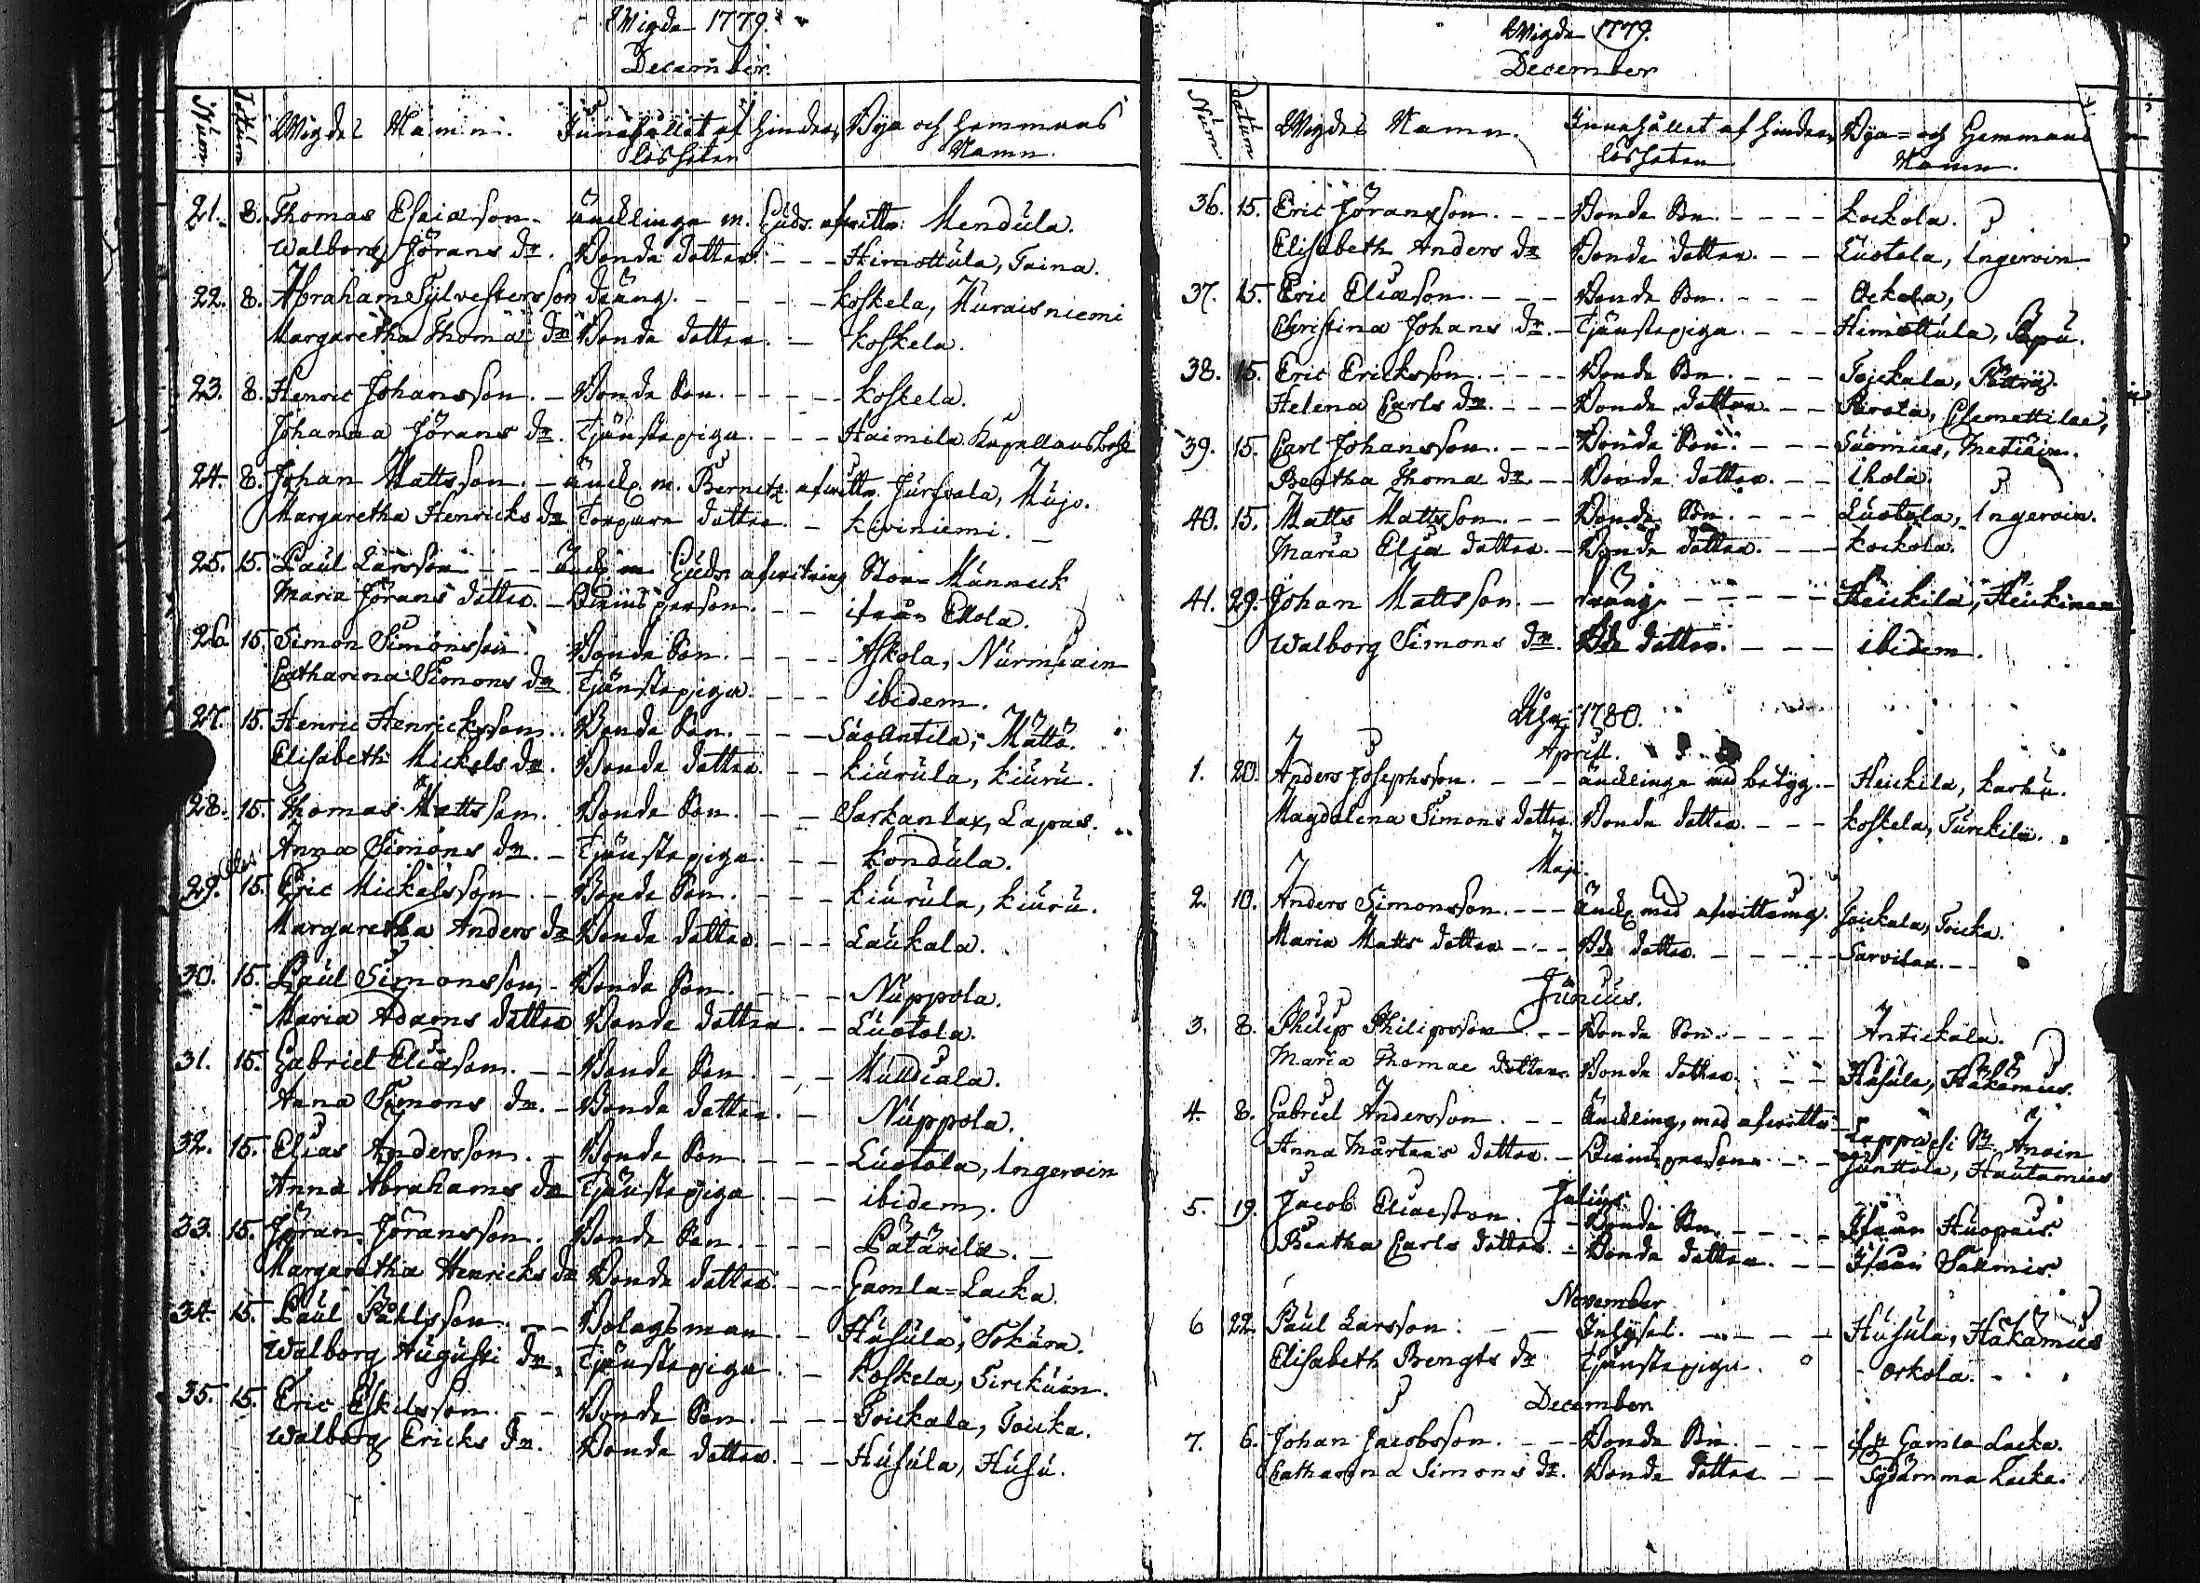 Wigde 1779.
December.
Num Datum Wigdes Namn. Innehållet af hinders Bya och Hemmans
lösheten Namn.
21. 8. Thomas Esaiæson. änckling m. Guds. afwittr: Mendula.
Walborg Jörans dr. Bonde dotter. - - Himottula, Taina.
22. 8. Abraham Sylvestersson dräng. - - - - Koskela, Kuraisniemi
Margaretha Thomæ dr Bonde dotter. - Koskela.
23. 8. Henric Johansson. - Bonde Son. - - - - Koskela.
Johanna Jörans dr. Tjänstepiga. - - - Haimila Kapellansbohl
24. 8. Johan Mattsson. - änckl. m. afwittr. Jurfvala, Mujo.
Margaretha Henricks dr Torpare dotter. - Kiviniemi. -
25. 15. Paul Larsson - - - Änckl m Guds. afwitring Stor-Männeck
Maria Jörans dotter. - - - ifrån Ekola.
26. 15. Simon Simonsson. Bonde Son. - - - - Askola, Nurmiain
Catharina Simons dr Tjänstepiga. - - - ibidem.
27. 15. Henric Henricksson. Bonde Son. - - - Suo Antila, Mattö.
Elisabeth Mickels dr. Bonde dotter. - - Kiurula, Kiuru.
28. 15. Thomas Mattsson. Bonde Son. - - Sarkanlax, Lapas.
Anna Simons dr. - Tjänstepiga. - - Kondula.
29. 15. Eric Mickelsson. - Bonde Son. - - - Kiurula, Kiuru.
Margaretha Anders dr Bonde dotter. - - - Laukala.
30. 15. Paul Simonsson, - Bonde Son. - - - Nuppola.
Maria Adams dotter Bonde dotter. - Luotola.
31. 15. Gabriel Eliæson. - - Bonde Son. - - - Mulldiala.
Anna Simons dr. - Bonde dotter. - Nuppola.
32. 15. Elias Andersson. - Bonde Son. - - - Luotola, Ingervin
Anna Abrahams dr Tjänstepiga. - - ibidem.
33. 15. Jöran Jöransson. Bonde Son. - - - Pätärilä. -
Margaretha Henricks dr Bonde dotter. - - Gamla-Lacka.
34. 15. Paul Påhlsson. - - Bolagsman. - Husula, Tokura.
Walborg Augusti dr. Tjänstepiga. - Koskela, Sirckuin.
35. 15. Eric Eskilsson. - - Bonde Son. - - - Toickala, Toicka.
Walborg Ericks dr. Bonde dotter. - - Husula, Husu.
Wigde 1779.
December
Num Datum Wigdes Namn. Innehållet af hinders Bya- och Hemmans
lösheten Namn.
36. 15. Eric Jöransson. - - - Bonde Son. - - - - Kockola.
Elisabeth Anders dr Bonde dotter. - - Luotola, Ingervin
37. 15. Eric Eliæson. - - - Bonde Son. - - - Ockola,
Christina Johans dr. - Tjänstepiga. - - - Himottula, Papu.
38. 15. Eric Ericksson. - - - - Bonde Son. - - - Toickala,
Helena Carls dr. - - - Bonde dotter. - - Pirola, Clemettilæ,
39. 15. Carl Johansson. - - - Bonde Son. - - - Suomies,
Beatha Thomæ dr. - - Bonde dotter. - - Ihola.
40. 15. Matts Mattsson. - - Bonde Son. - - - - Luotola, Ingervin.
Maria Eliæ dotter. - Bonde dotter. - - - Kockola.
41. 29. Johan Mattsson. - dräng. - - - - - Heickilä, Heickinen
Walborg Simons dr. Bde dotter. - - - ibidem.
Åhr 1780.
April.
1. 20. Anders Josephsson. - - - änckling med betyg. - Heickila, Karhu.
Magdalena Simons dotter. Bonde dotter. - - - Koskela, Turckila.
Maji.
2. 10. Anders Simonsson. - - - änckl med afwittring. Toickala, Toicka.
Maria Matts dotter - - - Bde dotter. - - - - - Sarvilax. - -
Junius.
3. 8. Philip Philipsson - - - Bonde Son. - - - - Antickala.
Maria Thomæ dotter. Bonde dotter. - - Husula, Hakamies.
4. 8. Gabriel Andersson. - - Änckling, med afwittr: Lappvesi Sn Anoin
Anna Mårtens dotter. - - - Junttola, Hautamies
Julius.
5. 19. Jacob Eliæsson. - - Bonde Son. - - - - Ifrån Huopais.
Beatha Carls dotter. - Bonde dotter. - - Ifrån Salmis.
November
6 22. Paul Larsson. - - Inhyses. - - - - Husula, Hakamies
Elisabeth Bengts dr Tjänstepiga. orkola. - - .
December
7. 6. Johan Jacobsson. - - - Bonde Son. - - - ifr Gamla Lacka.
Catharina Simons dr. Bonde dotter - - Sydämma Lacka.